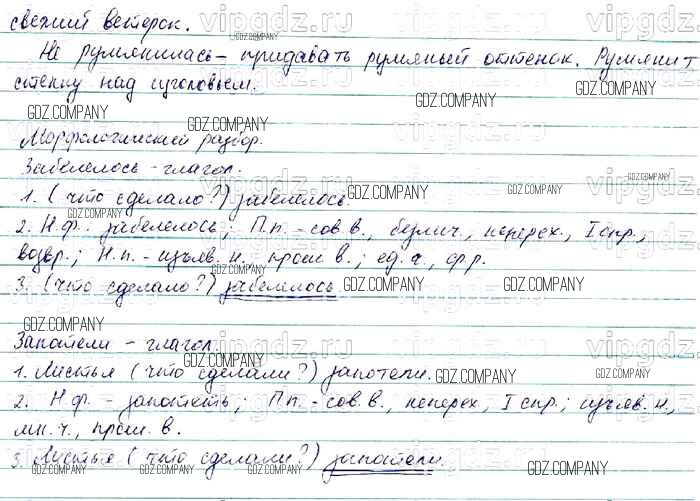 свежий ветерок.
Не румянилась – придавать румяный оттенок. Румянит
стенку над изголовьем.
Морфологический разбор.
Забелелось – глагол.
1. (что сделало?) забелелось.
2. Н.ф.: забелелось; П.п. – сов. в., безлич., неперех., I спр.,
возвр.; Н.п. – изъяв. н., прош. в.; ед. ч., ср. р.
3. (что сделало?) забелелось.
Запотели – глагол.
1. Листья (что сделали?) запотели.
2. Н.ф. – запотеть; П.п. – сов. в., неперех., I спр.; изъяв. н.,
мн. ч., прош. в.
3. Листья (что сделали?) запотели.
GDZ.COMPANY
vipgdz.ru